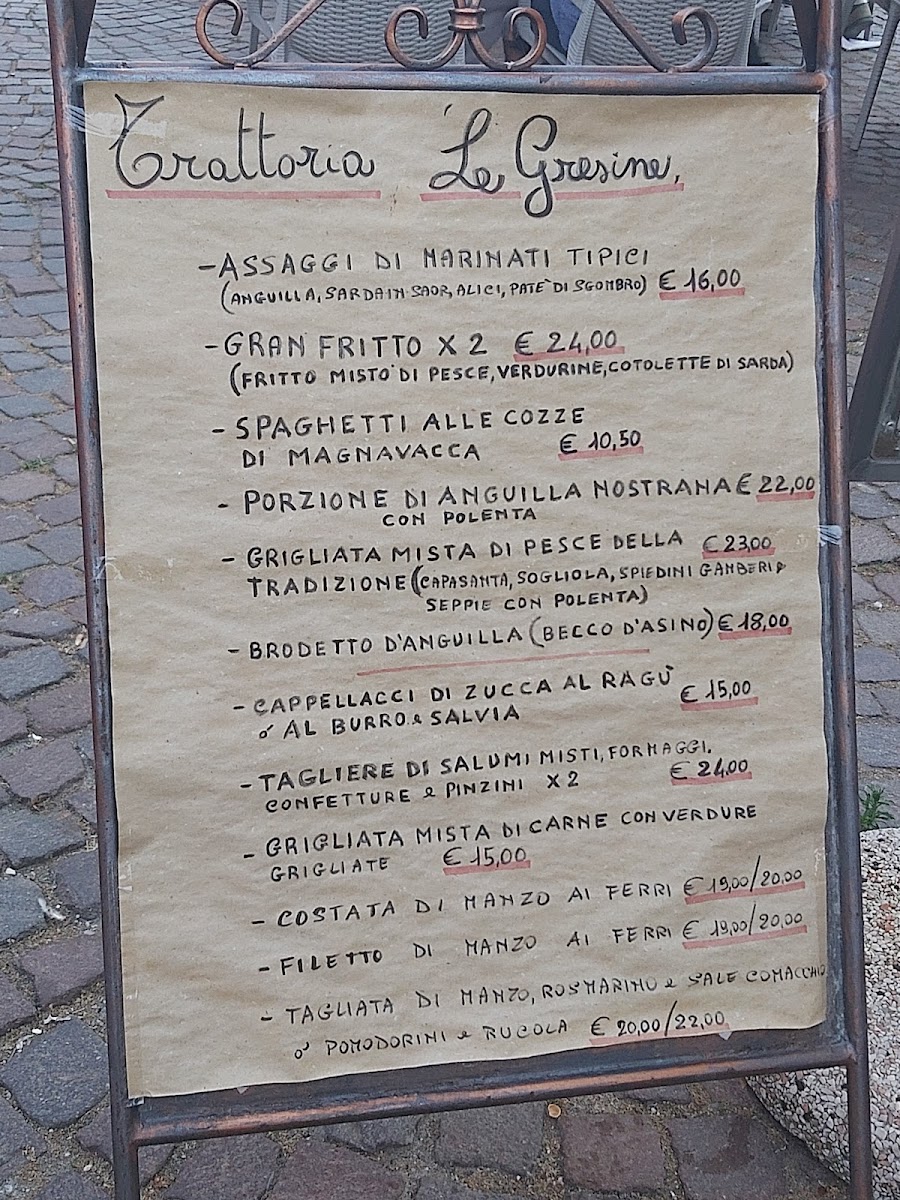 Trattoria Le Gresine,
- ASSAGGI DI MARINATI TIPICI
(ANGUILLA, SARDA IN SAOR, ALICI, PATÈ DI SGOMBRO) € 16,00
- GRAN FRITTO X 2 € 24,00
(FRITTO MISTO DI PESCE, VERDURINE, COTOLETTE DI SARDA)
- SPAGHETTI ALLE COZZE
DI MAGNAVACCA € 10,50
- PORZIONE DI ANGUILLA NOSTRANA € 22,00
CON POLENTA
- GRIGLIATA MISTA DI PESCE DELLA € 23,00
TRADIZIONE (CAPASANTA, SOGLIOLA, SPIEDINI GAMBERI e
SEPPIE CON POLENTA)
- BRODETTO D'ANGUILLA (BECCO D'ASINO) € 18,00
- CAPPELLACCI DI ZUCCA AL RAGÙ € 15,00
o' AL BURRO e SALVIA
- TAGLIERE DI SALUMI MISTI, FORMAGGI,
CONFETTURE e PINZINI X 2 € 24,00
- GRIGLIATA MISTA DI CARNE CON VERDURE
GRIGLIATE € 15,00
- COSTATA DI MANZO AI FERRI € 19,00/20,00
- FILETTO DI MANZO AI FERRI € 19,00/20,00
- TAGLIATA DI MANZO, ROSMARINO e SALE COMACCHIO
o' POMODORINI e RUCOLA € 20,00/22,00